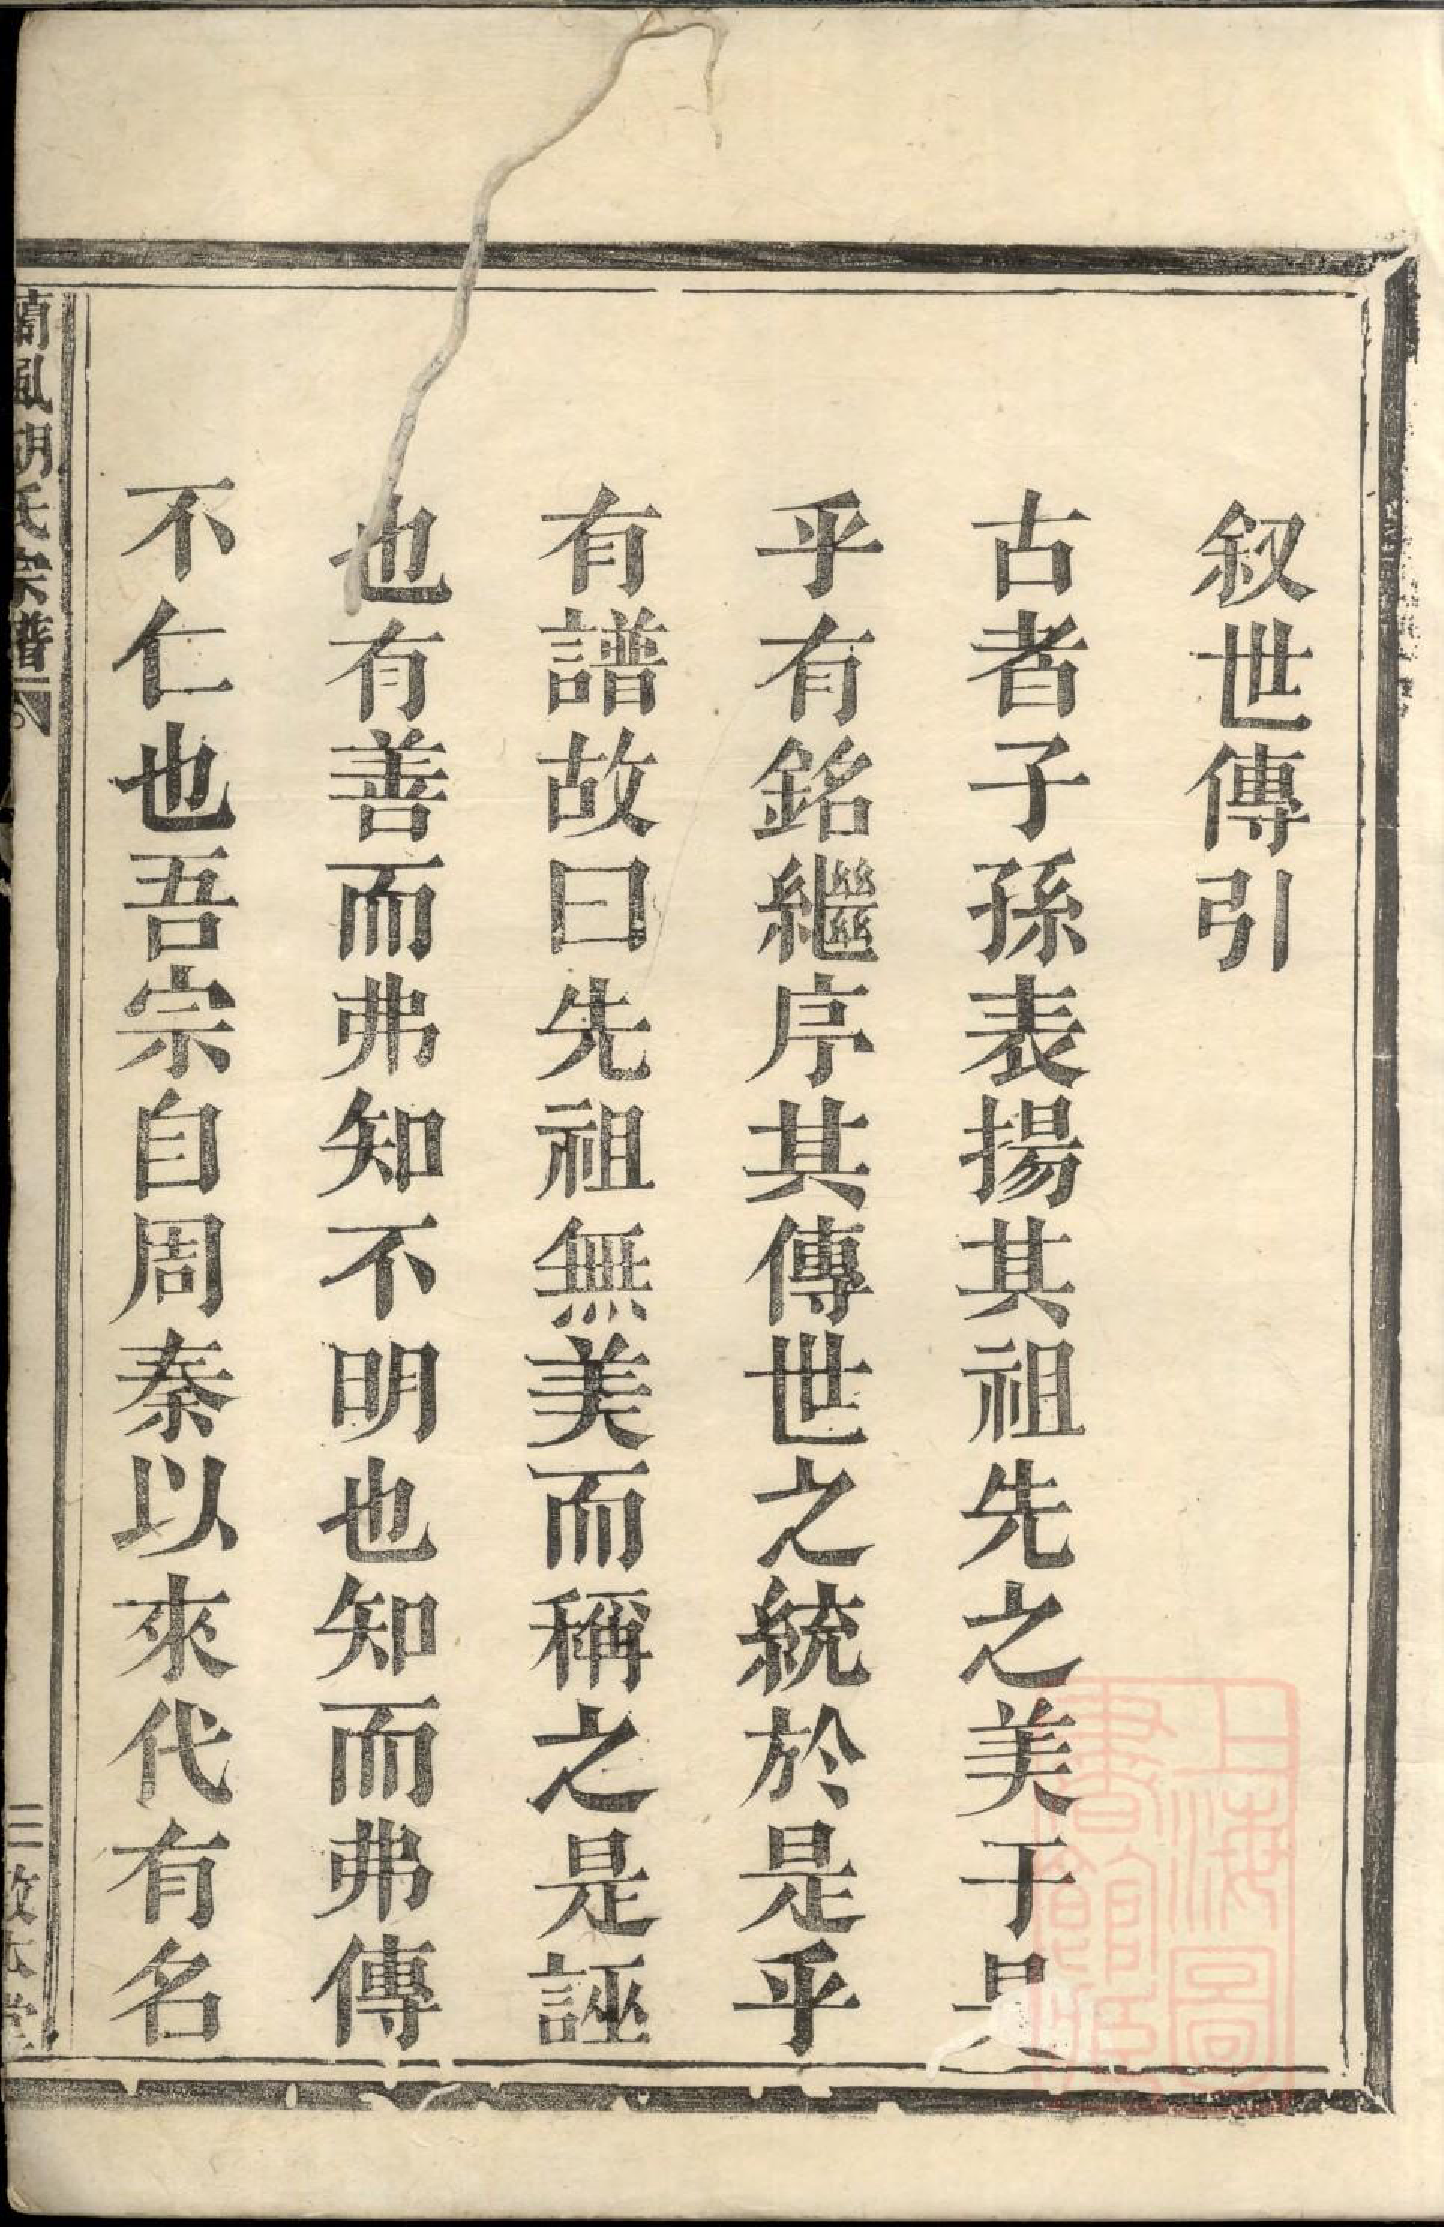 叙世傳引
古者子孫表揚其祖先之美于是
乎有銘繼序其傳世之統於是乎
有譜故曰先祖無美而稱之是誣
也有善而弗知不明也知而弗傳
不仁也吾宗自周秦以來代有名
蘭風胡氏宗譜
三 敦本堂
上海圖書館藏